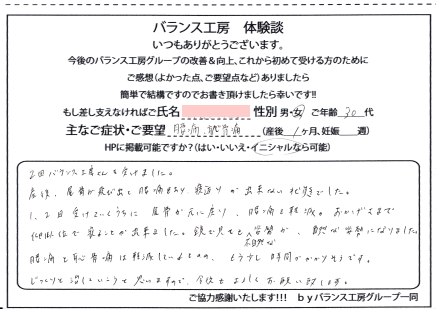 バランス工房 体験談
いつもありがとうございます。
今後のバランス工房グループの改善&向上、これから初めて受ける方のために
ご感想(よかった点、ご要望点など)ありましたら
簡単で結構ですのでお書き頂けましたら幸いです!!
もし差し支えなければご氏名 性別 男・女 ご年齢 30 代
主なご症状・ご要望 腰痛、恥骨痛 (産後 1ヶ月、妊娠 週)
HPに掲載可能ですか?(はい・いいえ・イニシャルなら可能)
2回バランス工房さんを受けました。
産後、尾骨が飛び出て腰痛もあり、寝返りが出来ない状態でした。
1、2回受けていくうちに尾骨が元に戻り、腰痛も軽減。おかげさまで
仰臥位で寝ることが出来ました。鏡で見ても不自然な骨盤が、自然な骨盤になりました。
腰痛と恥骨痛は軽減しているものの、もう少し時間がかかりそうです。
じっくりと治していこうと思いますので、今後もよろしくお願い致します。
ご協力感謝いたします!!! byバランス工房グループ一同